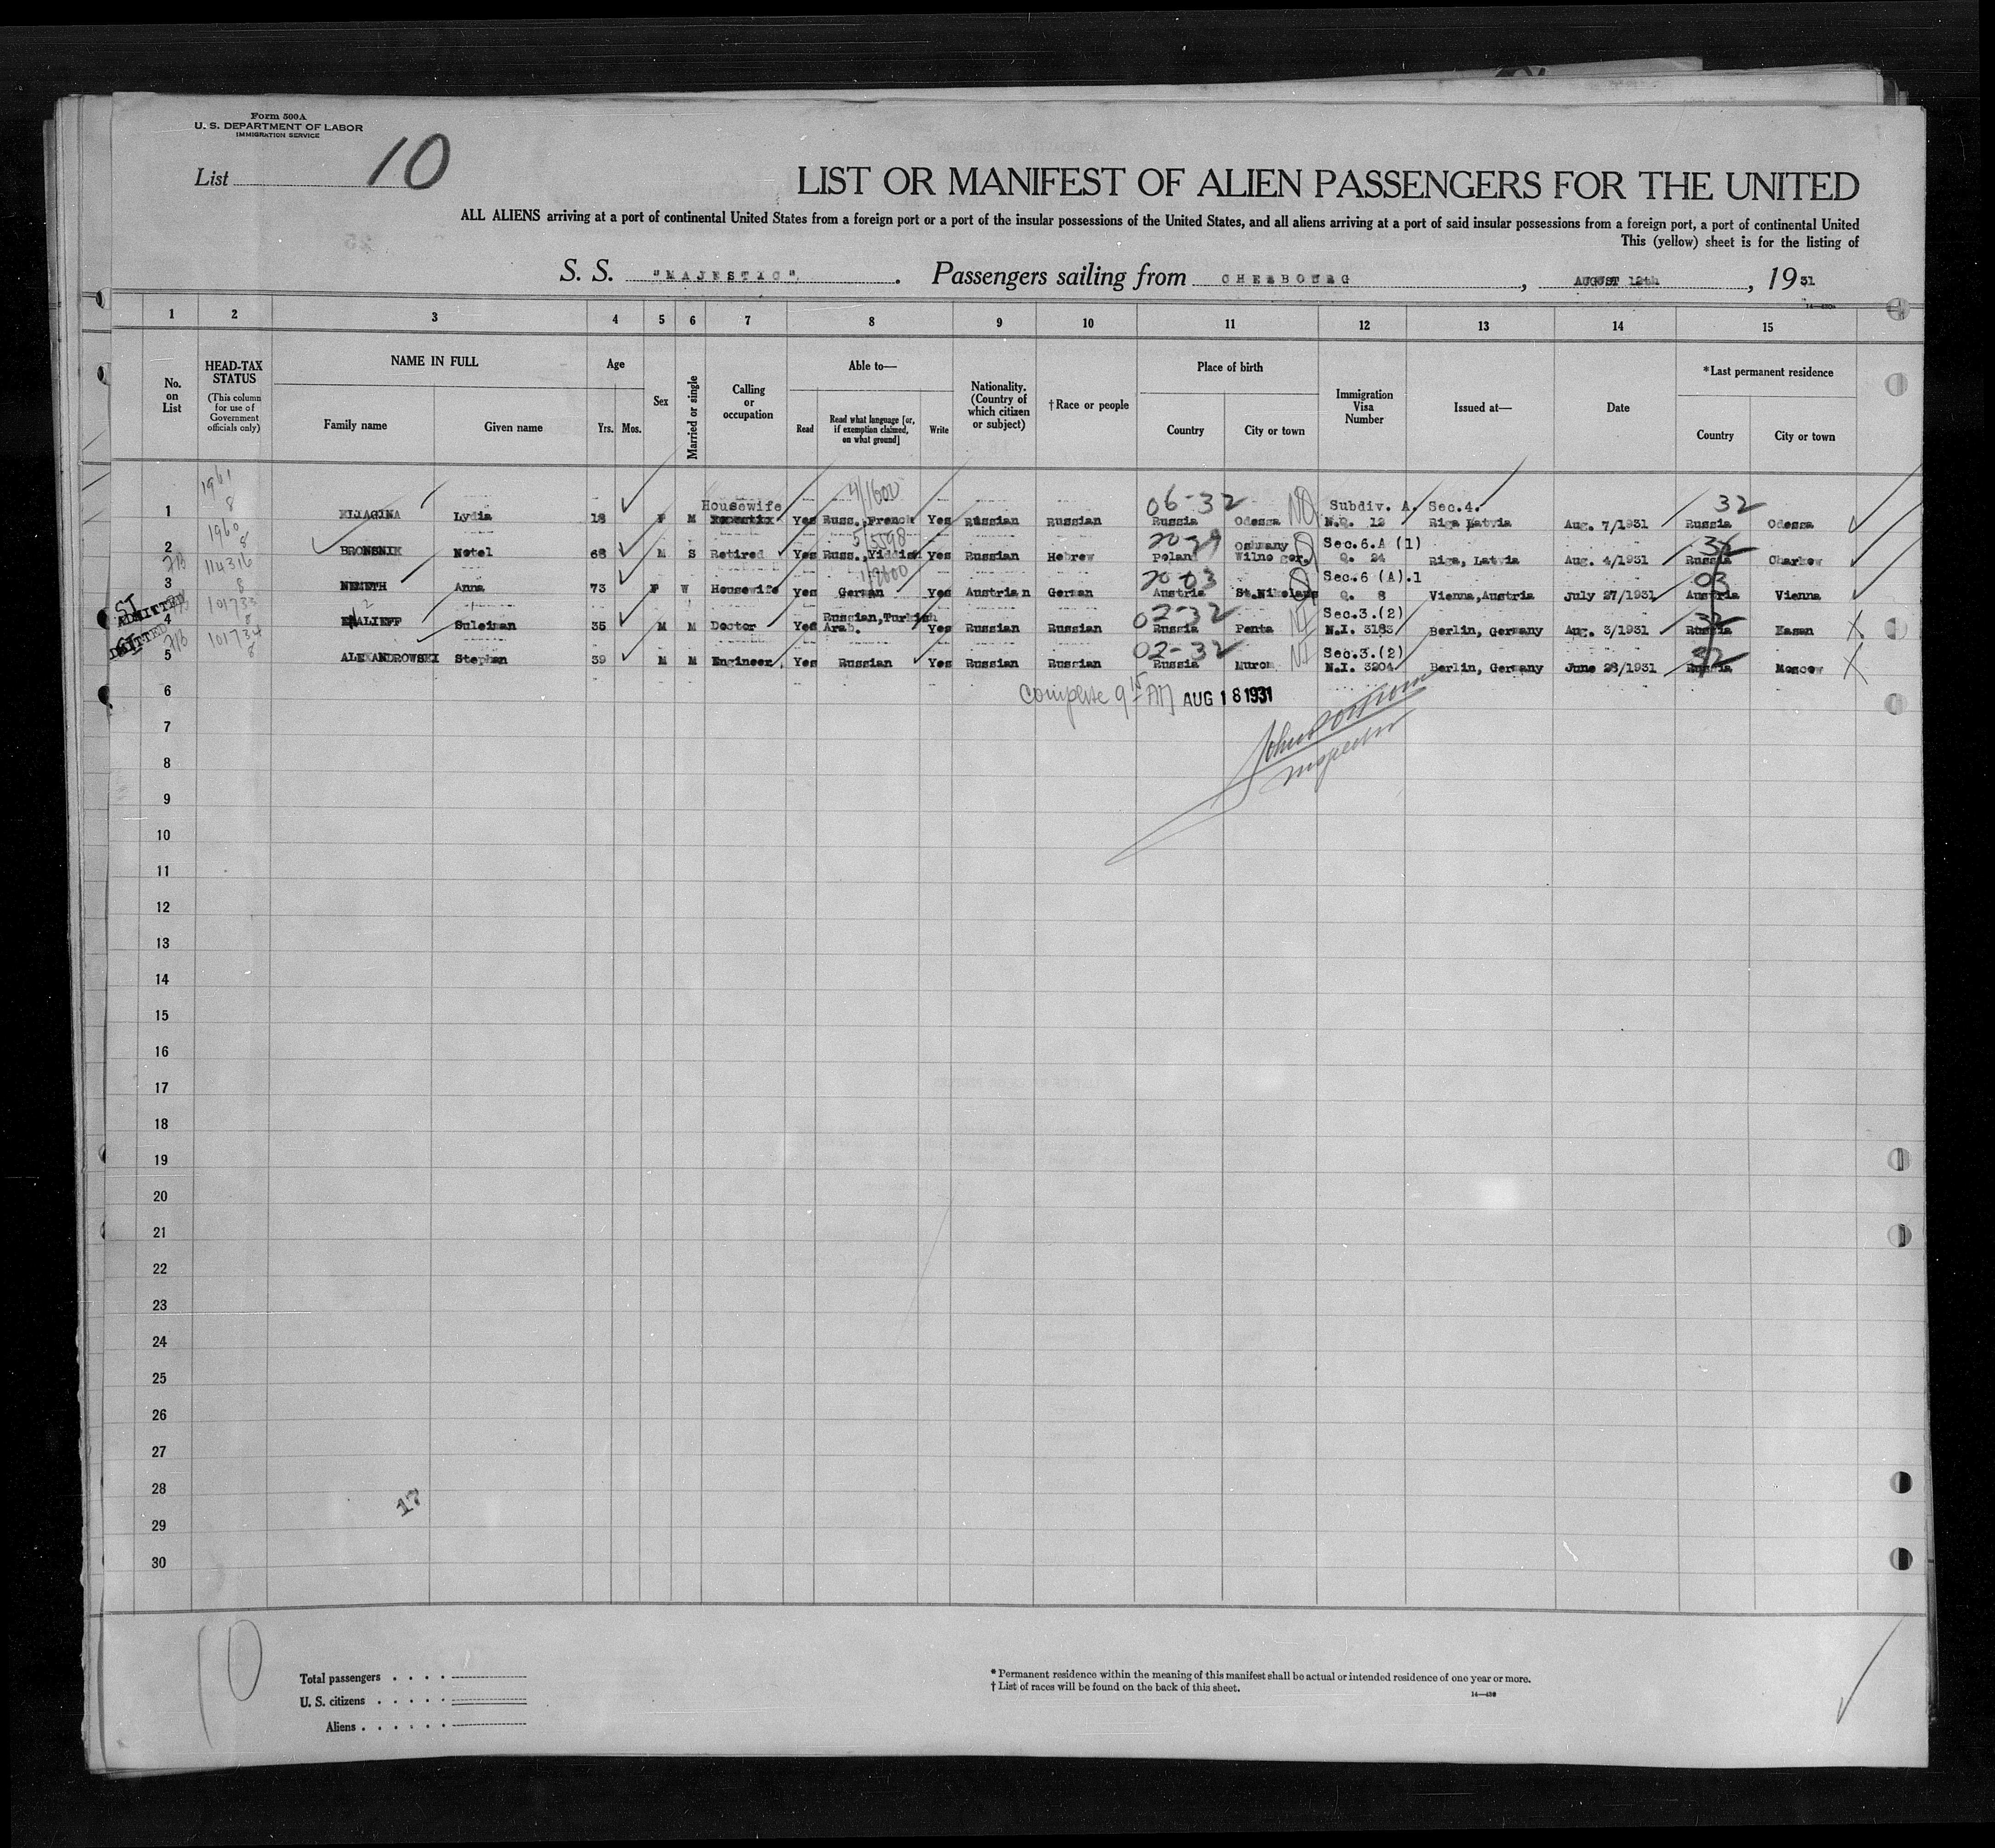 Form 500A
U. S. DEPARTMENT OF LABOR
IMMIGRATION SERVICE
List 10
LIST OR MANIFEST OF ALIEN PASSENGERS FOR THE UNITED
ALL ALIENS arriving at a port of continental United States from a foreign port or a port of the insular possessions of the United States, and all aliens arriving at a port of said insular possessions from a foreign port, a port of continental United
This (yellow) sheet is for the listing of
S. S. "MAJESTIC". Passengers sailing from CHERBOURG, AUGUST 12th, 1931
1 2 3 4 5 6 7 8 9 10 11 12 13 14 15
No. on List
HEAD-TAX STATUS (This column for use of Government officials only)
NAME IN FULL
Family name Given name
Age
Yrs. Mos.
Sex
Married or single
Calling or occupation
Able to—
Read Read what language [or, if exemption claimed, on what ground] Write
Nationality. (Country of which citizen or subject)
†Race or people
Place of birth
Country City or town
Immigration Visa Number
Issued at—
Date
*Last permanent residence
Country City or town
1961 8 4/1600 06-32 NQ Subdiv. A. Sec.4. 32
1 ELIAGINA Lydia 18 F M Housewife Yes Russ., French Yes Russian Russian Russia Odessa N.Q. 12 Riga Latvia Aug. 7/1931 Russia Odessa
1960 8 5/5598 Sec.6.A (1)
2 BRONSNIK Notel 68 M S Retired Yes Russ., Yiddish Yes Russian Hebrew Poland Oshmany Wilno gor. Q. 24 Riga, Latvia Aug. 4/1931 Russia Charkow
114316 8 1/2600 20-03 Q Sec.6 (A).1 03
3 NEMETH Anna 73 F W Housewife Yes German Yes Austrian German Austria St.Nikolaus Q. 8 Vienna, Austria July 27/1931 Austria Vienna
SI ADMITTED 101733 8 02-32 NI Sec.3.(2) 32
4 ENALIEFF Suleiman 35 M M Doctor Yes Russian, Turkish Arab. Yes Russian Russian Russia Penta N.I. 3183 Berlin, Germany Aug. 3/1931 Russia Kasan
101734 8 02-32 NI Sec.3.(2) 32
5 ALEXANDROWSKI Stephan 39 M M Engineer Yes Russian Yes Russian Russian Russia Murom N.I. 3204 Berlin, Germany June 28/1931 Russia Moscow
6 Complete 9 15 AM AUG 18 1931
Inspector
7
8
9
10
11
12
13
14
15
16
17
18
19
20
21
22
23
24
25
26
27
28
17
29
30
10
Total passengers . . . .
U. S. citizens . . . . .
Aliens . . . . . .
* Permanent residence within the meaning of this manifest shall be actual or intended residence of one year or more.
† List of races will be found on the back of this sheet.